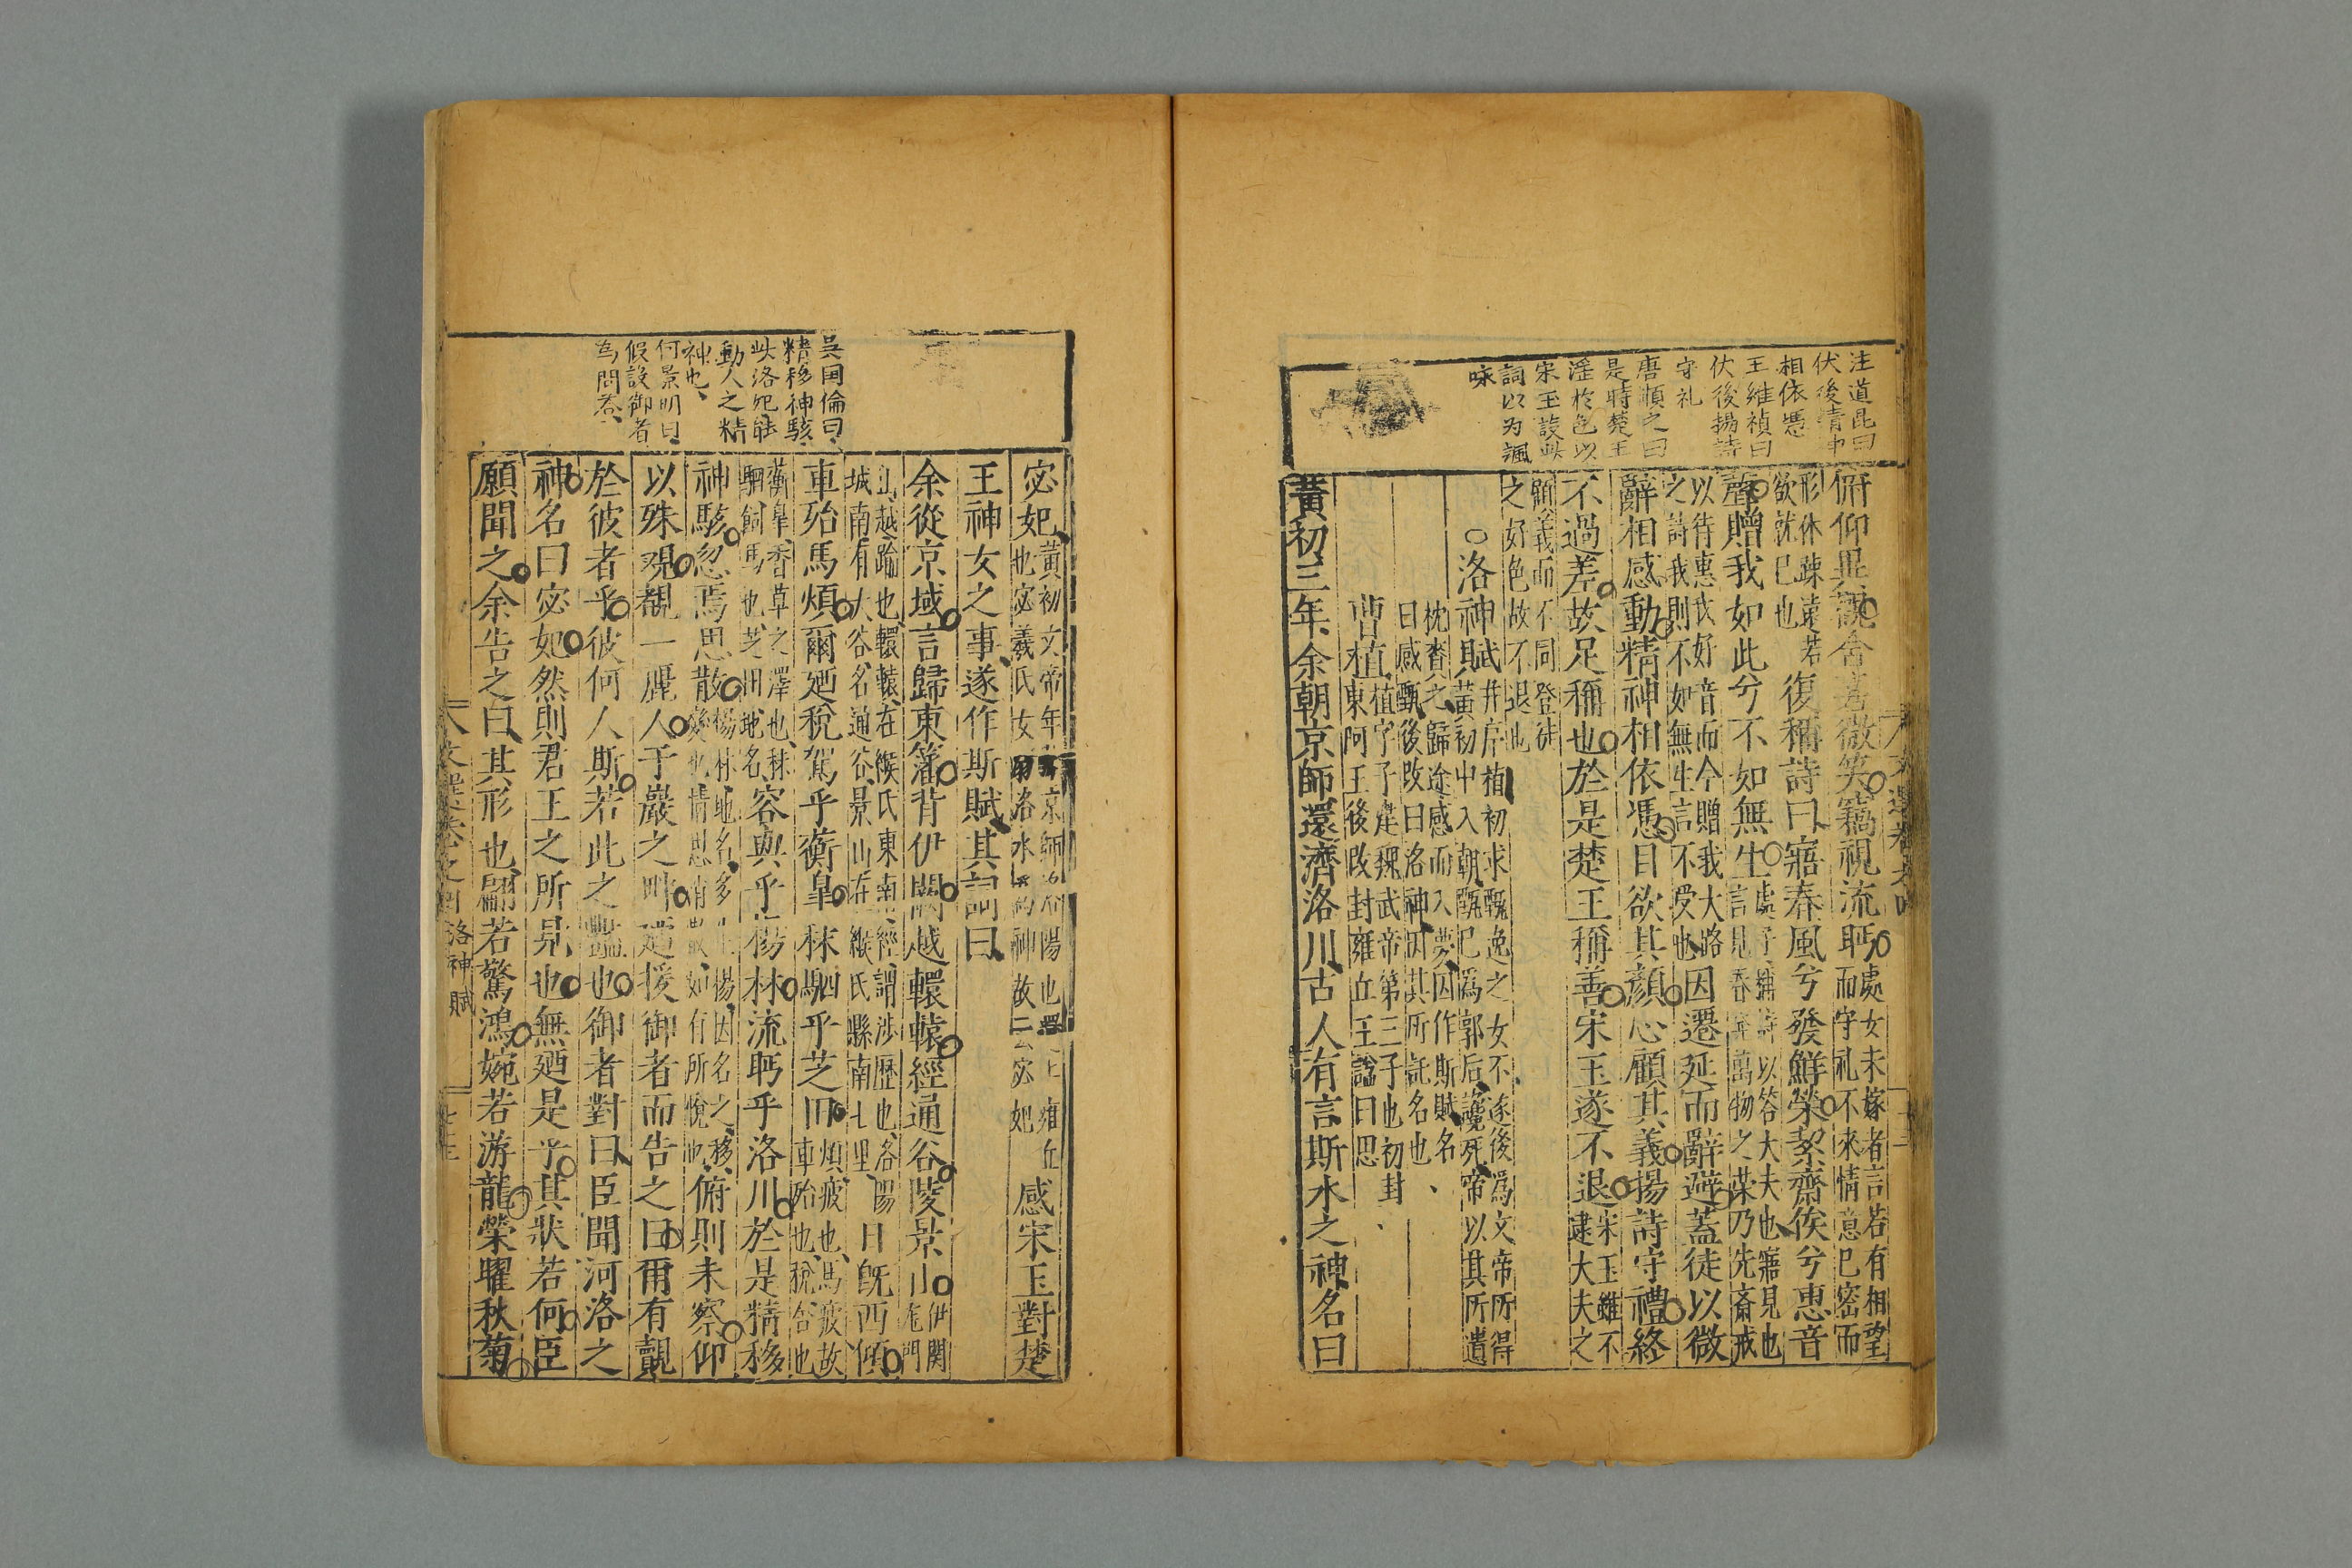 汪道昆曰
伏後情中
相依憑
王維禎曰
伏後揚詩
守礼
唐順之曰
是時楚王
淫於色以
宋玉設此
詞以为諷
咏
俯仰異觀含喜微笑竊視流眄處女未嫁者言若有相望
而守礼不來情意已密而
形体踈遠若
欲就已也復稱詩曰寤春風兮發鮮榮絜齋俟兮惠音
聲贈我如此兮不如無生處子稱詩以答大夫也寤見也
言見春萬物之荣乃先齋戒
以待惠我好音而今贈我大路
之詩我則不如無生言不受也因遷延而辭避蓋徒以微
辭相感動精神相依憑目欲其顏心顧其義揚詩守禮終
不過差故足稱也於是楚王稱善宋玉遂不退宋玉雖不
逮大夫之
顧義而不同登徒
之好色故不退也
○洛神賦并序植初求甄逸之女不遂後爲文帝所得
黃初中入朝甄已爲郭后讒死帝以其所遺
枕賚之歸途感而入夢因作斯賦名
曰感甄後改曰洛神因其所託名也
曹植植字子建魏武帝第三子也初封
東阿王後改封雍丘王謚曰思
黃初三年余朝京師還濟洛川古人有言斯水之神名曰
吳国倫曰
精移神駭
此洛妃能
動人之精
神也
何景明曰
假設御者
為問荅
宓妃黃初文帝年
也宓羲氏女
洛水
神故云宓妃感宋玉對楚
王神女之事遂作斯賦其詞曰
余從京域言歸東籓背伊闕越轘轅經通谷陵景山伊関
龍門
山越踰也轘轅在緱氏東南經謂涉歷也洛陽
城南有大谷名通谷景山在緱氏縣南七里日既西傾
車殆馬煩爾廼稅駕乎蘅臯秣駟乎芝田煩疲也馬疲故
車殆也稅舍也
蘅臯香草之澤也秣
駟飼馬也芝田地名容與乎楊林流眄乎洛川於是精移
神駭忽焉思散楊林地名多生楊因名之移
變也情思消散如有所悅也俯則未察仰
以殊觀覩一麗人于巖之畔廼援御者而告之曰爾有覿
於彼者乎彼何人斯若此之豔也御者對曰臣聞河洛之
神名曰宓妃然則君王之所見也無廼是乎其狀若何臣
願聞之余告之曰其形也翩若驚鴻婉若游龍榮曜秋菊
文選卷之四
洛神賦